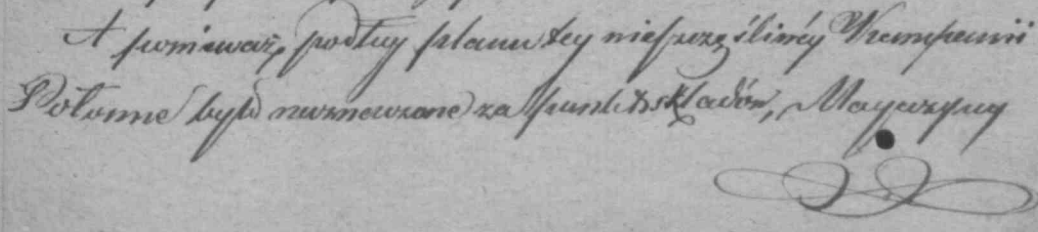 A ponieważ, podług planu tey nieszczęśliwéy Kampanii
Połonne było naznaczone za punkt składów, Magazyny